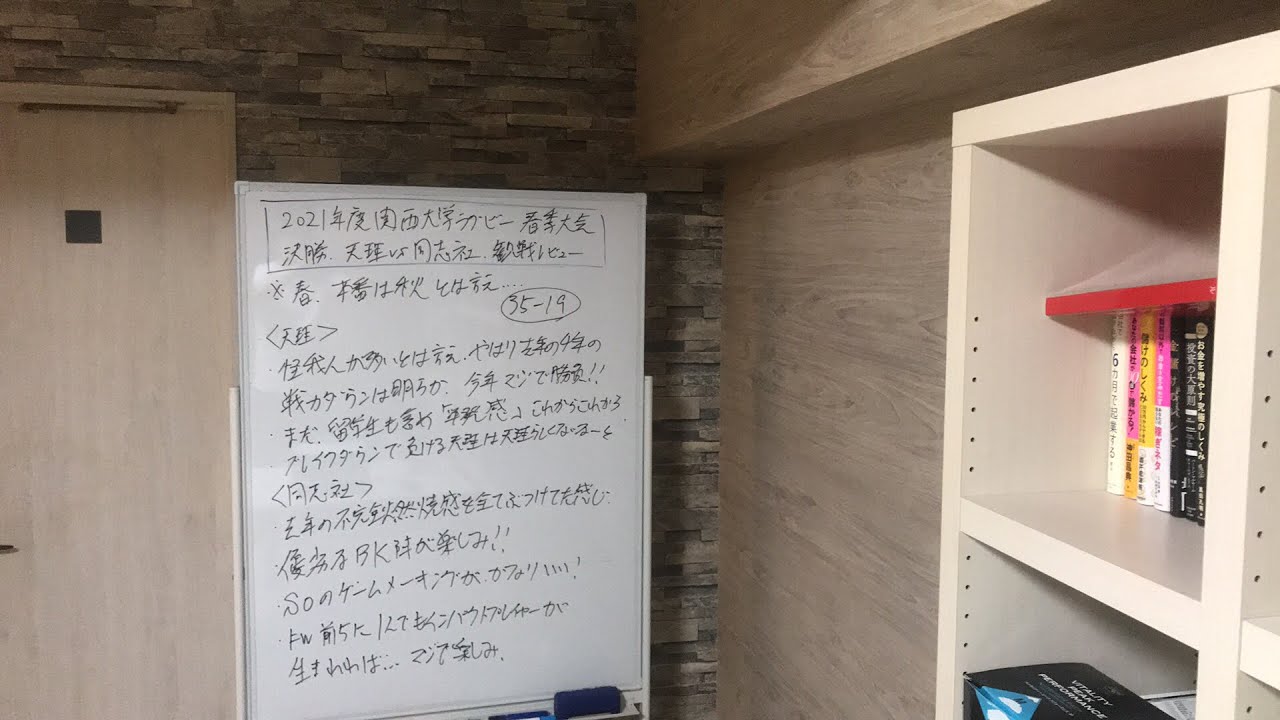 2021年度関西大学ラグビー 春季大会
決勝. 天理 vs 同志社. 観戦レビュー
※ 春. 本番は秋 とは言え....
35-19
<天理>
・怪我人が多いとは言え、やはり去年の4年の
戦力ダウンは明らか. 今年マジで勝負!!
・まだ、留学生も含め「 感」 これからこれから
・ブレイクダウンで負ける天理は天理らしくないなーと
<同志社>
・去年の不完全燃焼感を全てぶつけてた感じ.
・優秀なBK陣が楽しみ!!
・SOのゲームメーキングが、かなりいい!
・FW前5に1人でもインパクトプレイヤーが
生まれれば... マジで楽しみ.
6カ月で起業する!
あなたの会社が
儲かる!
儲けのしくみ
稼ぎネタ
投資の大原則
お金を増やす究極のしくみ
VITALITY
PEAK
PERFORMANCE